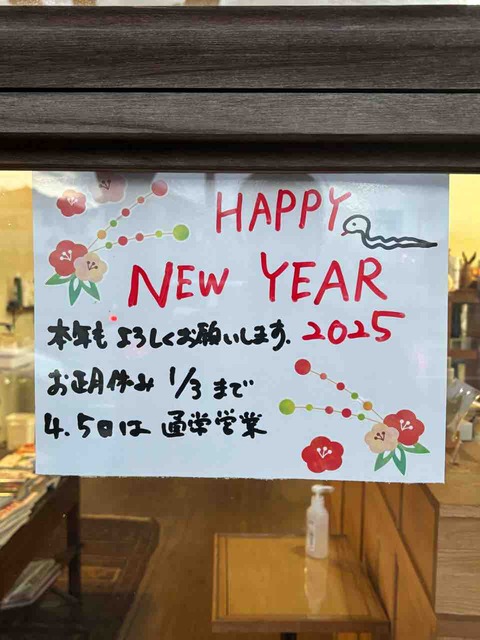 HAPPY
NEW YEAR
2025
本年も よろしくお願いします.
お正月休み 1/3 まで
4.5日は 通常営業